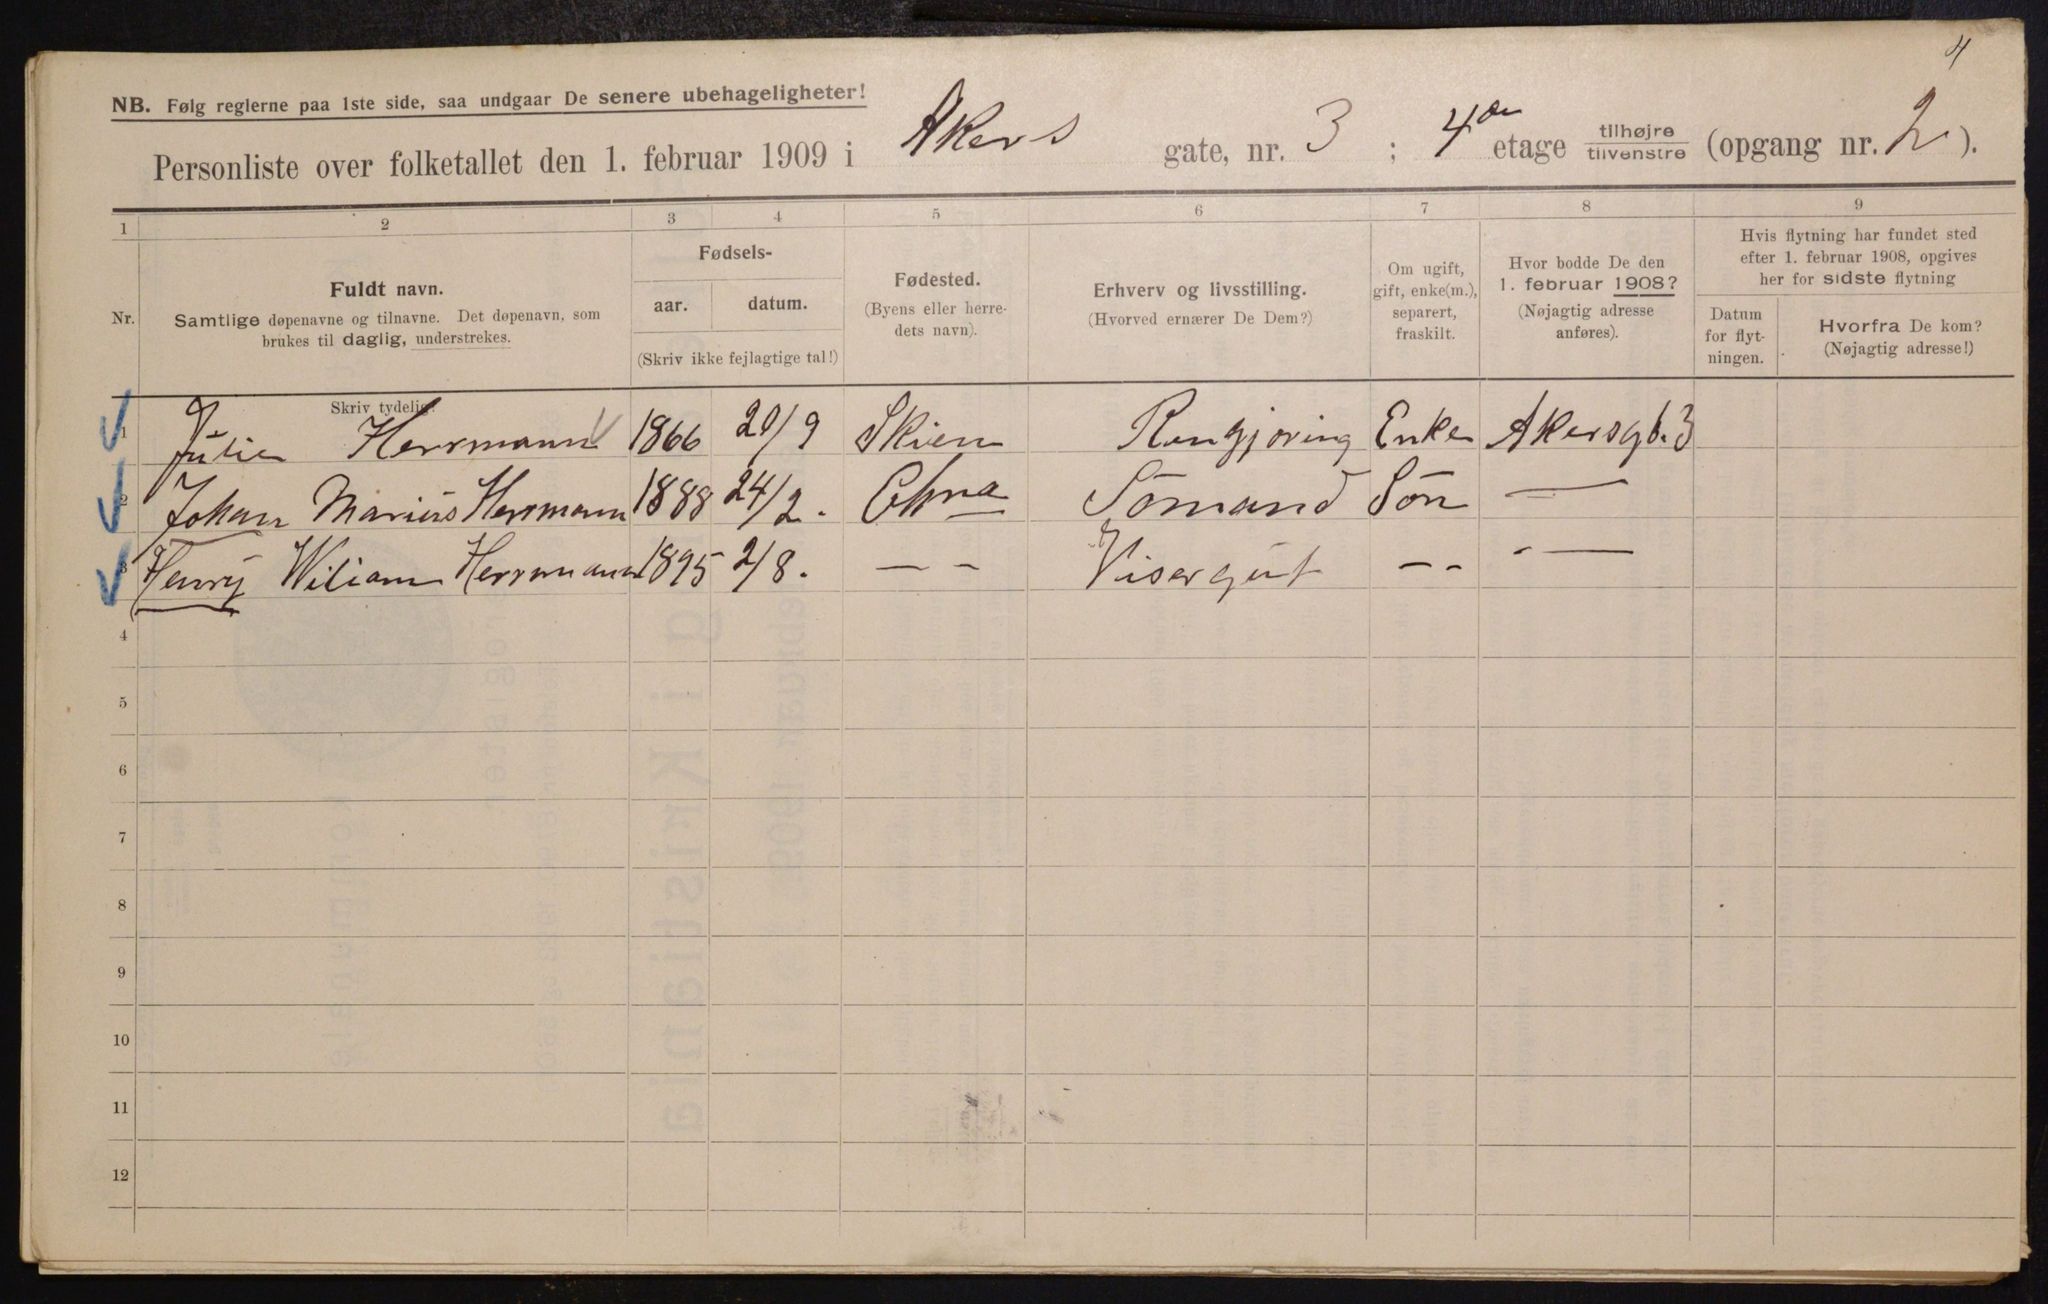 4
NB. Følg reglerne paa 1ste side, saa undgaar De senere ubehageligheter!
Personliste over folketallet den 1. februar 1909 i Akers gate, nr. 3 ; 4de etage tilhøjre/tilvenstre (opgang nr. 2 ).
1 2 3 4 5 6 7 8 9
Nr.
Fuldt navn.
Samtlige døpenavne og tilnavne. Det døpenavn, som
brukes til daglig, understrekes.
Fødsels-
aar. datum.
(Skriv ikke fejlagtige tal!)
Fødested.
(Byens eller herre-
dets navn).
Erhverv og livsstilling.
(Hvorved ernærer De Dem?)
Om ugift,
gift, enke(m.),
separert,
fraskilt.
Hvor bodde De den
1. februar 1908?
(Nøjagtig adresse
anføres).
Hvis flytning har fundet sted
efter 1. februar 1908, opgives
her for sidste flytning
Datum
for flyt-
ningen.
Hvorfra De kom?
(Nøjagtig adresse!)
Skriv tydelig!
1 Julie Herrmann 1866 20/9 Skien Rengjøring Enke Akersgt. 3
2 Johan Marius Herrmann 1888 24/2. Chra Sömand Sön —
3 Henry Wiliam Herrmann 1895 2/8. — — Visergut — — —
4
5
6
7
8
9
10
11
12